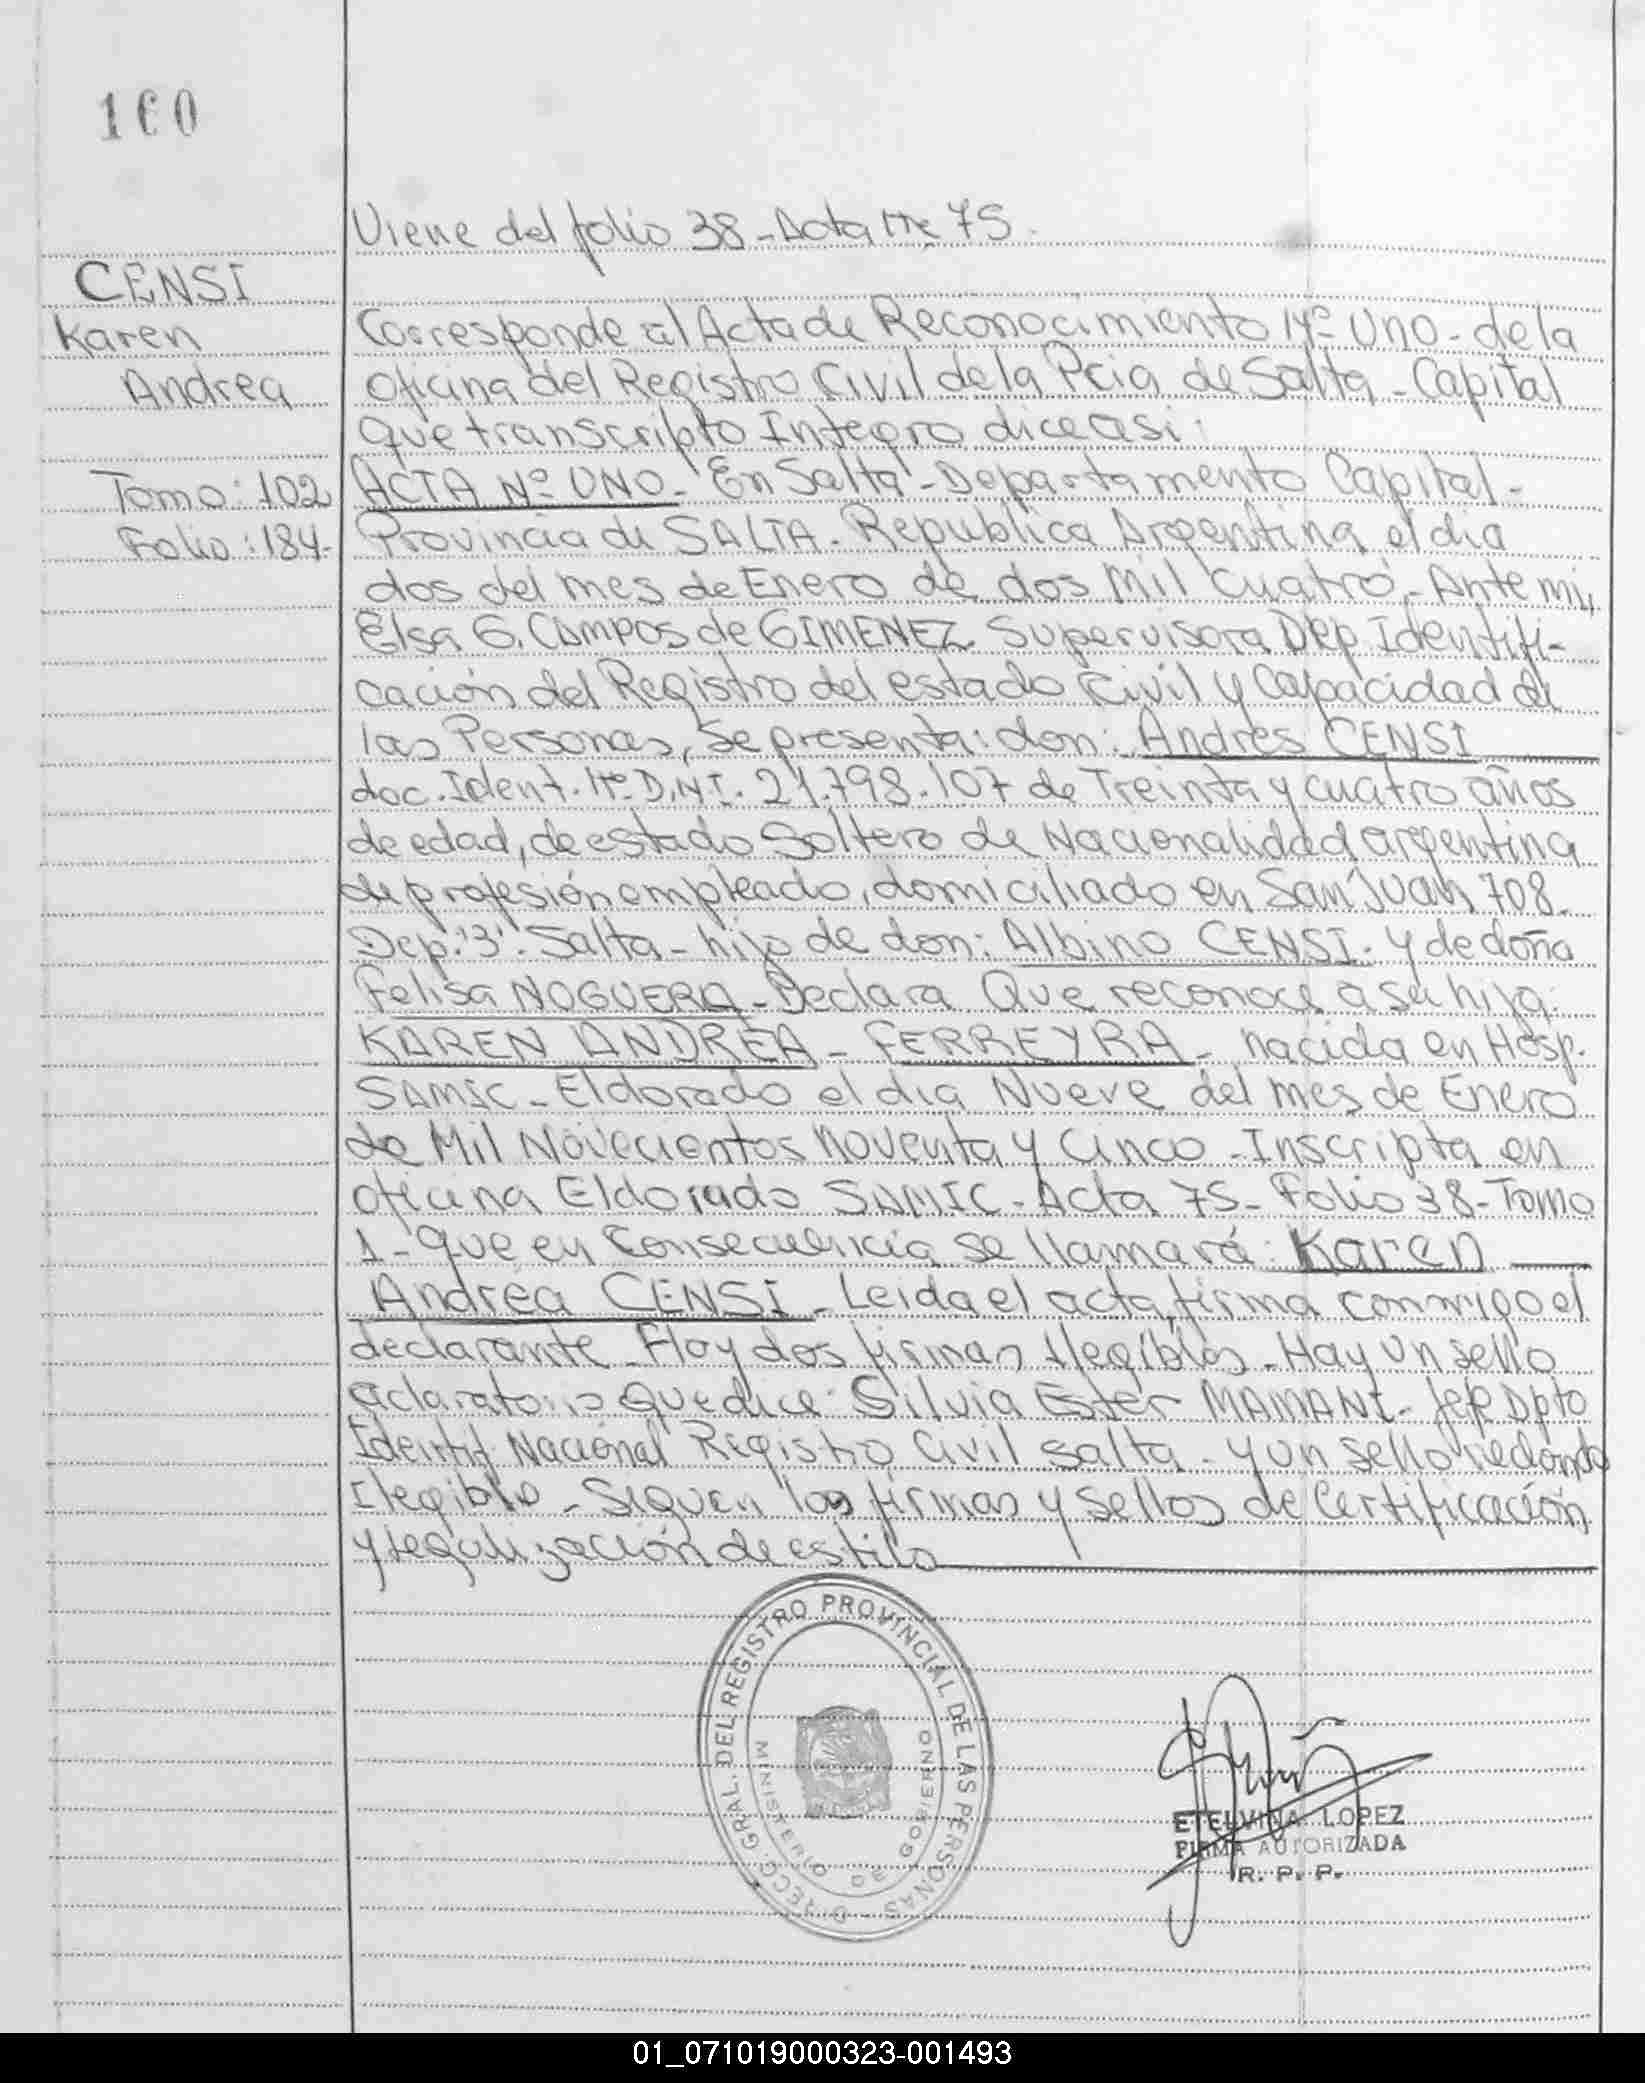 160
Viene del folio 38 - Acta Nº 75.
CENSI
Karen
Andrea
Tomo: 102
Folio: 184-
Corresponde al Acta de Reconocimiento Nº Uno - de la
oficina del Registro Civil de la Pcia de Salta - Capital
Que transcripto Integro dice asi:
ACTA Nº UNO - En Salta - Departamento Capital -
Provincia de SALTA. Republica Argentina el dia
dos del mes de Enero de dos Mil cuatro - Ante mi,
Elsa G. Campos de GIMENEZ Supervisora Dep Identifi-
cación del Registro del estado Civil y Capacidad de
las Personas, Se presenta: don: Andres CENSI
doc. Ident. Nº D.N.I. 21.798.107 de Treinta y cuatro años
de edad, de estado Soltero de Nacionalidad argentina
de profesión empleado, domiciliado en San Juan 708.
Dep. "3". Salta - hijo de don: Albino CENSI. y de doña
Felisa NOGUERA - Declara Que reconoce a su hija:
KAREN ANDREA - FERREYRA - nacida en Hosp.
SAMIC - Eldorado el dia Nueve del mes de Enero
de Mil Novecientos noventa y Cinco - Inscripta en
oficina Eldorado SAMIC - Acta 75 - Folio 38 - Tomo
1 - Que en Consecuencia se llamará: Karen
Andrea CENSI - Leida el acta, firma conmigo el
declarante - Hay dos firmas Ilegibles - Hay un sello
aclaratorio Que dice: Silvia Ester MAMANI - Jefe Dpto
Identif. Nacional Registro Civil Salta - y un sello redondo
Ilegible - Siguen las firmas y sellos de Certificación
y legalización de estilo
DIRECC. GRAL. DEL REGISTRO PROVINCIAL DE LAS PERSONAS
MINISTERIO DE GOBIERNO
ETELVINA LOPEZ
FIRMA AUTORIZADA
R. P. P.
01_071019000323-001493